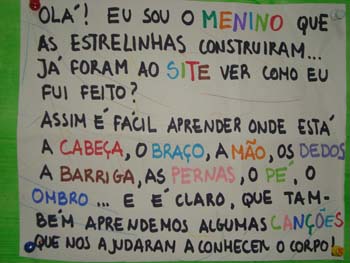 OLÁ! EU SOU O MENINO QUE
AS ESTRELINHAS CONSTRUIRAM...
JÁ FORAM AO SITE VER COMO EU
FUI FEITO?
ASSIM É FÁCIL APRENDER ONDE ESTÁ
A CABEÇA, O BRAÇO, A MÃO, OS DEDOS
A BARRIGA, AS PERNAS, O PÉ, O
OMBRO... E É CLARO, QUE TAM-
BÉM APRENDEMOS ALGUMAS CANÇÕES
QUE NOS AJUDARAM A CONHECER O CORPO!